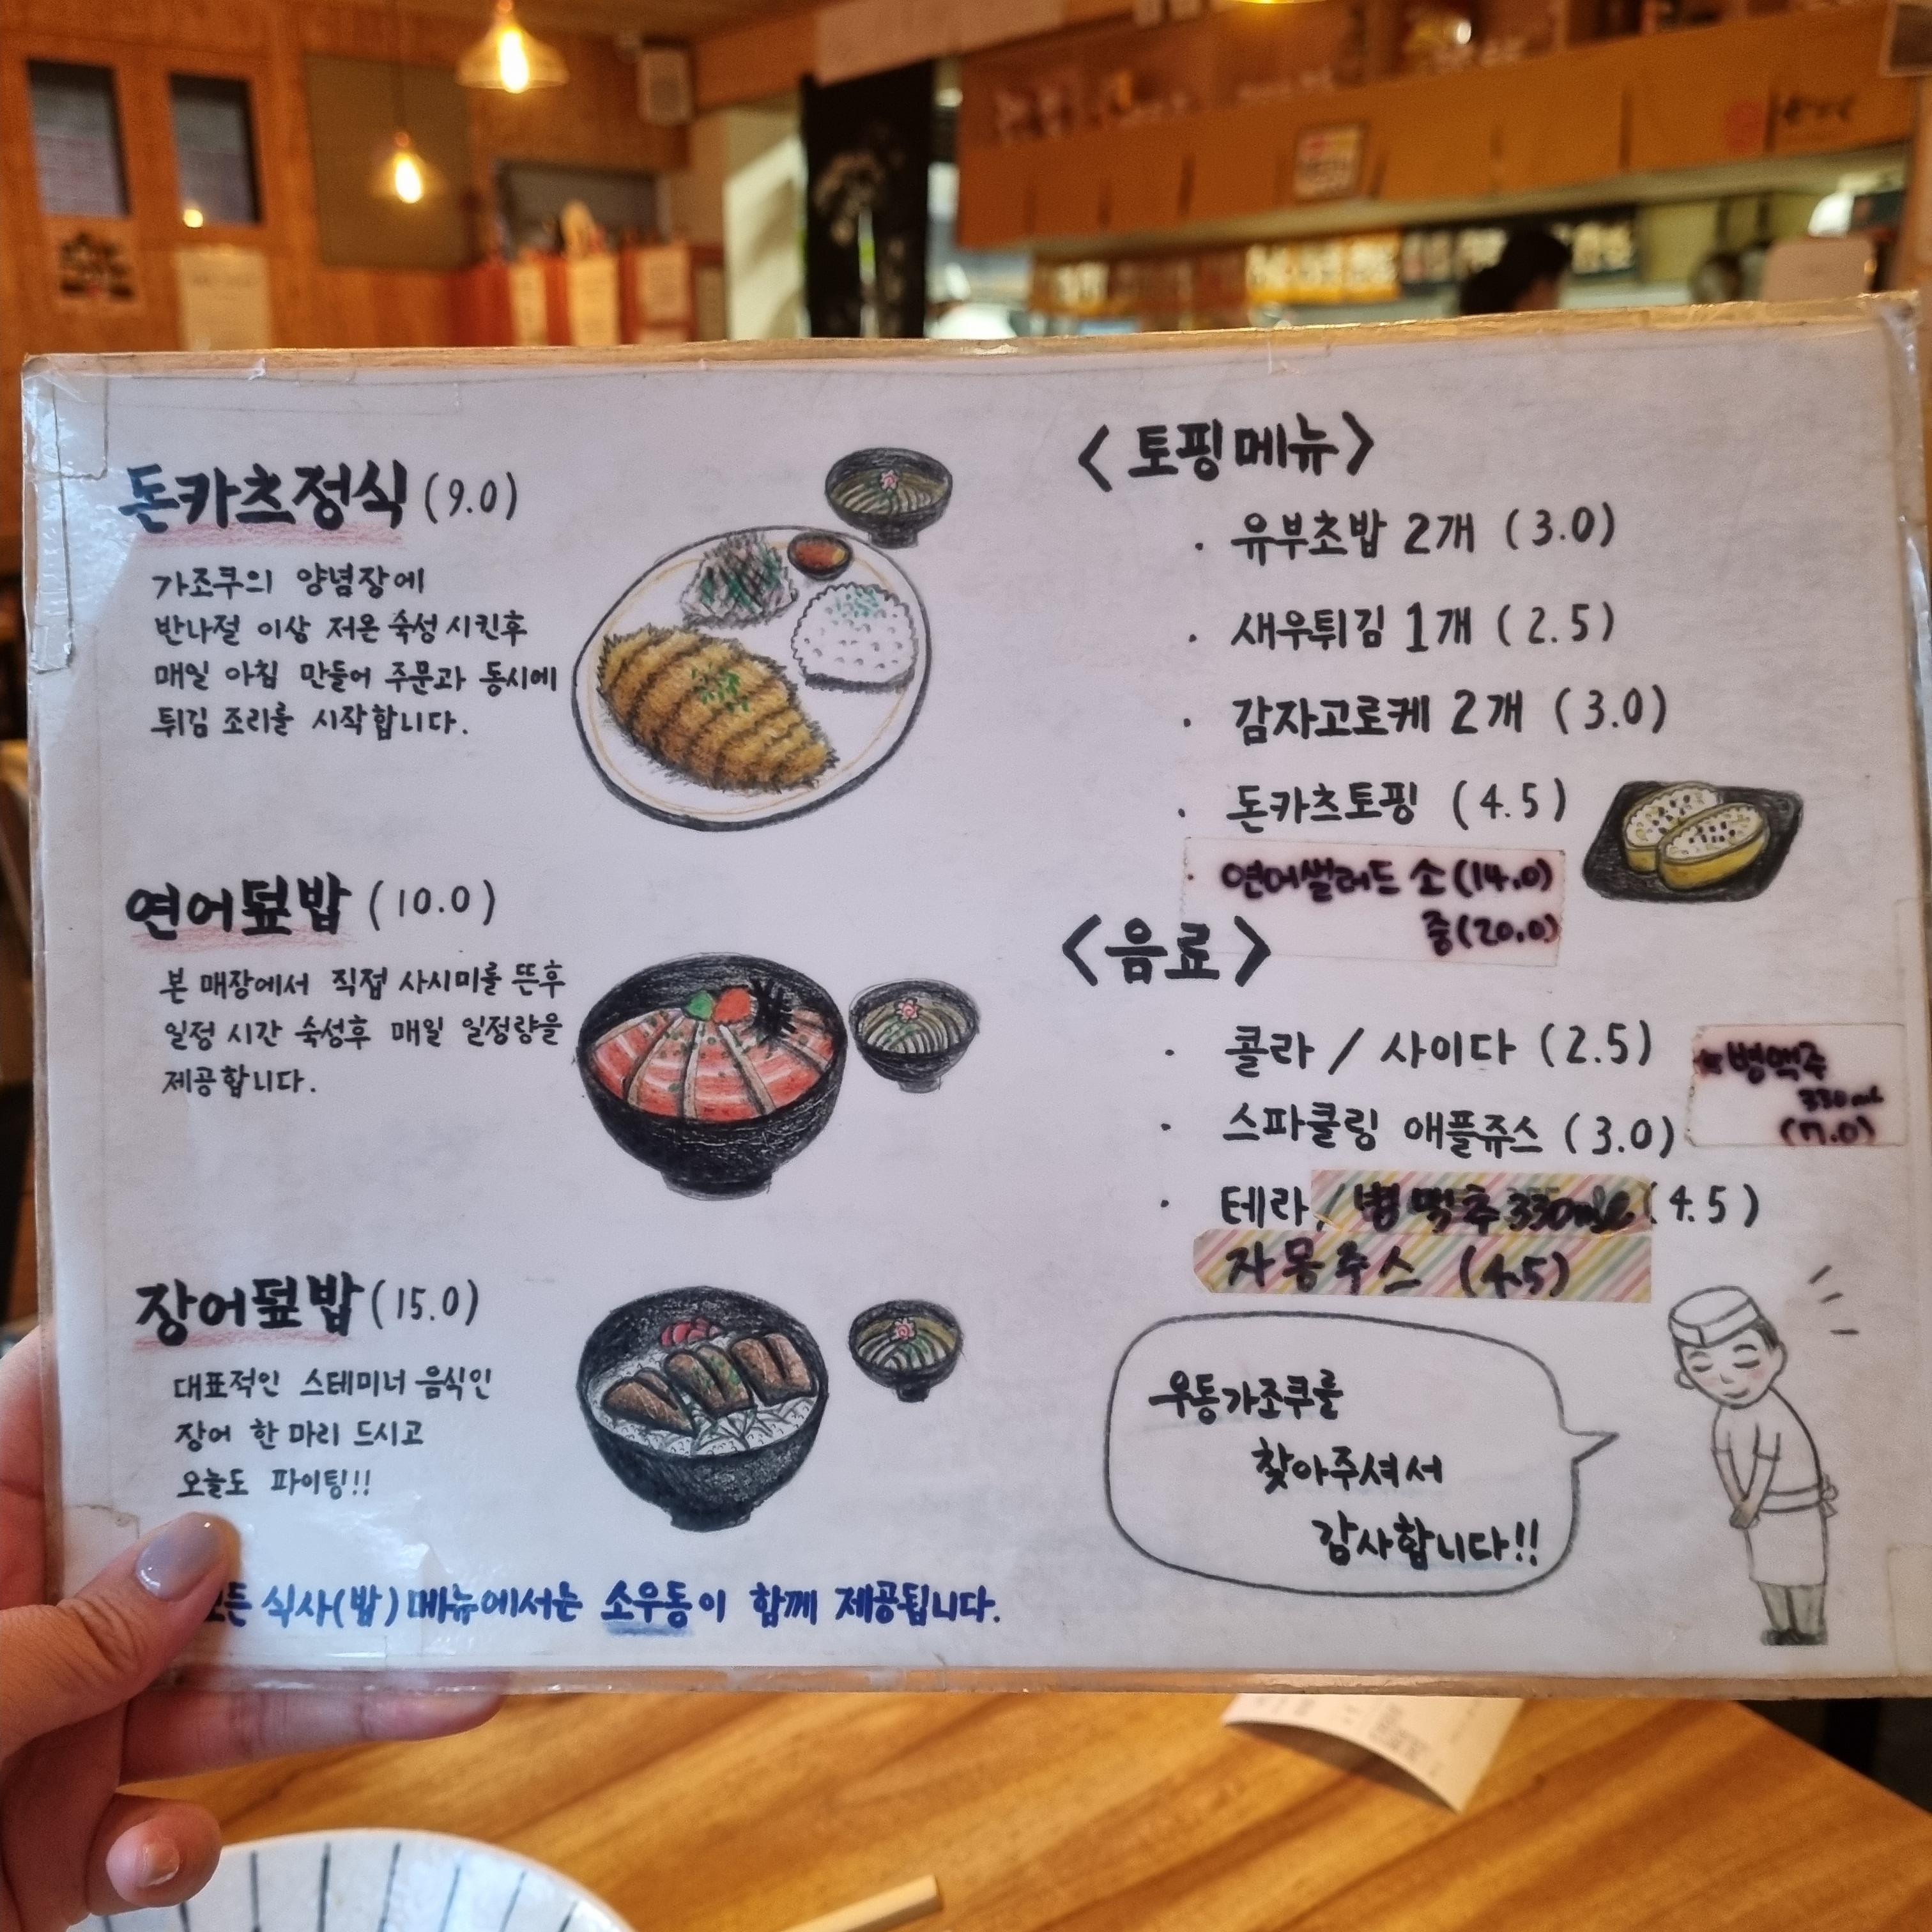 돈카츠정식 (9.0)
가조쿠의 양념장에
반나절 이상 저온 숙성 시킨후
매일 아침 만들어 주문과 동시에
튀김 조리를 시작합니다.
연어덮밥 (10.0)
본 매장에서 직접 사시미를 뜬후
일정 시간 숙성후 매일 일정량을
제공합니다.
장어덮밥 (15.0)
대표적인 스테미너 음식인
장어 한 마리 드시고
오늘도 파이팅!!
식사(밥) 메뉴에서는 소우동이 함께 제공됩니다.
<토핑메뉴>
· 유부초밥 2개 (3.0)
· 새우튀김 1개 (2.5)
· 감자고로케 2개 (3.0)
· 돈카츠토핑 (4.5)
· 연어샐러드 소(14.0)
중(20.0)
<음료>
· 콜라 / 사이다 (2.5)
· 스파클링 애플쥬스 (3.0)
★병맥주
330mL
(7.0)
· 테라 / 병맥주 330ml (4.5)
자몽주스 (4.5)
우동가조쿠를
찾아주셔서
감사합니다!!